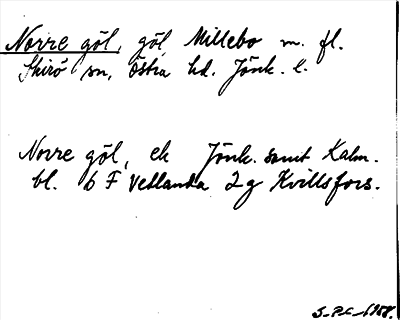 Norre göl, göl Millebo m. fl.
Skirö sn, Östra hd. Jönk. l.
Norre göl, ek Jönk. samt Kalm.
bl. 6 F Vetlanda 2g Kvillsfors.